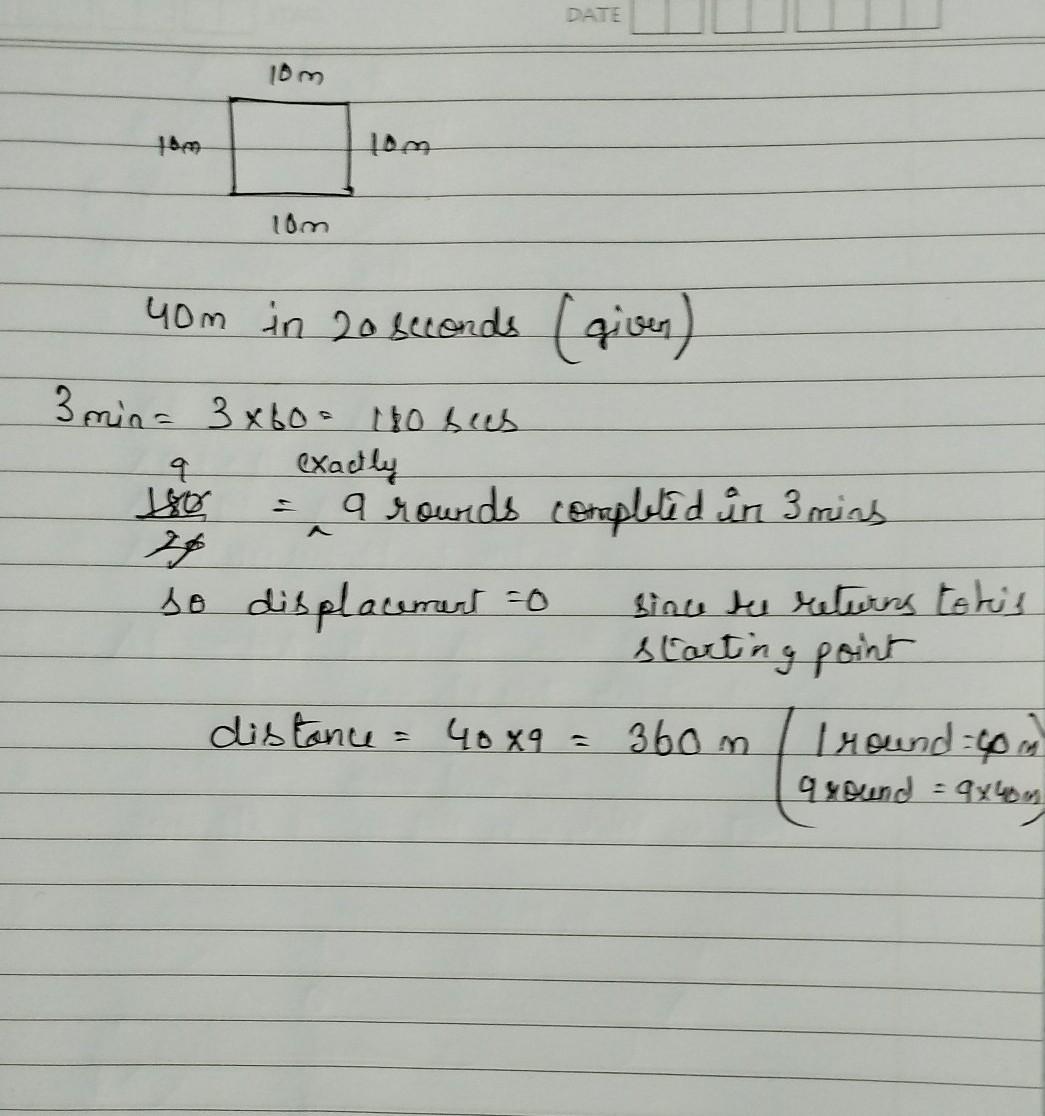 DATE
10m
10m
10m
10m
40m in 20 seconds (given)
3 min = 3 x 60 = 180 secs
9 exactly
180 = ^ 9 rounds completed in 3 mins
20
so displacement = 0 since he returns to his
starting point
distance = 40 x 9 = 360 m (1 round = 40 m
9 round = 9 x 40m)